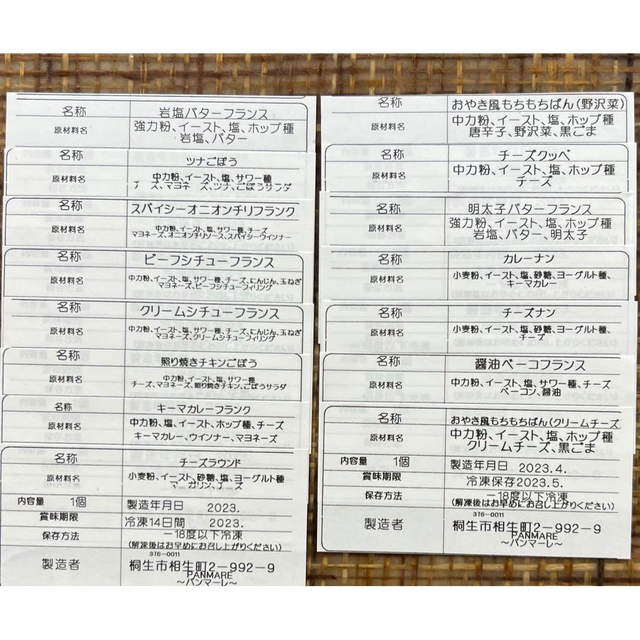 名称 岩塩バターフランス
原材料名 強力粉、イースト、塩、ホップ種
岩塩、バター
名称 ツナごぼう
原材料名 中力粉、イースト、塩、サワー種
チーズ、マヨネーズ、ツナ、ごぼうサラダ
名称 スパイシーオニオンチリフランク
原材料名 中力粉、イースト、塩、サワー種、チーズ
マヨネーズ、オニオンチリソース、スパイシーウィンナー
名称 ビーフシチューフランス
原材料名 中力粉、イースト、塩、サワー種、チーズ、にんじん、玉ねぎ
マヨネーズ、ビーフシチューフィリング
名称 クリームシチューフランス
原材料名 中力粉、イースト、塩、サワー種、チーズ、にんじん、玉ねぎ
マヨネーズ、クリームシチューフィリング
名称 照り焼きチキンごぼう
原材料名 中力粉、イースト、塩、サワー種
チーズ、マヨネーズ、照り焼きチキン、ごぼうサラダ
名称 キーマカレーフランク
原材料名 中力粉、塩、イースト、ホップ種、チーズ
キーマカレー、ウインナー、マヨネーズ
名称 チーズラウンド
原材料名 小麦粉、イースト、砂糖、塩、ヨーグルト種
マーガリン、チーズ
内容量 1個 製造年月日 2023.
賞味期限 冷凍14日間 2023.
保存方法 −18度以下冷凍
(解凍後はお早めにお召し上がりください)
376-0011
製造者 桐生市相生町2−992−9
PANMARE
〜パンマーレ〜
名称 おやき風もちもちぱん(野沢菜)
原材料名 中力粉、イースト、塩、ホップ種
唐辛子、野沢菜、黒ごま
名称 チーズクッペ
原材料名 中力粉、イースト、塩、ホップ種
チーズ
名称 明太子バターフランス
原材料名 強力粉、イースト、塩、ホップ種
岩塩、バター、明太子
名称 カレーナン
原材料名 小麦粉、イースト、塩、砂糖、ヨーグルト種、
キーマカレー
名称 チーズナン
原材料名 小麦粉、イースト、塩、砂糖、ヨーグルト種、
チーズ
名称 醤油ベーコフランス
原材料名 中力粉、イースト、塩、サワー種、チーズ
ベーコン、醤油
名称 おやき風もちもちぱん(クリームチーズ
原材料名 中力粉、イースト、塩、ホップ種
クリームチーズ、黒ごま
内容量 1個 製造年月日 2023.4.
賞味期限 冷凍保存2023.5.
保存方法 −18度以下冷凍
(解凍後はお早めにお召し上がりください)
376-0011
製造者 桐生市相生町2−992−9
PANMARE
〜パンマーレ〜